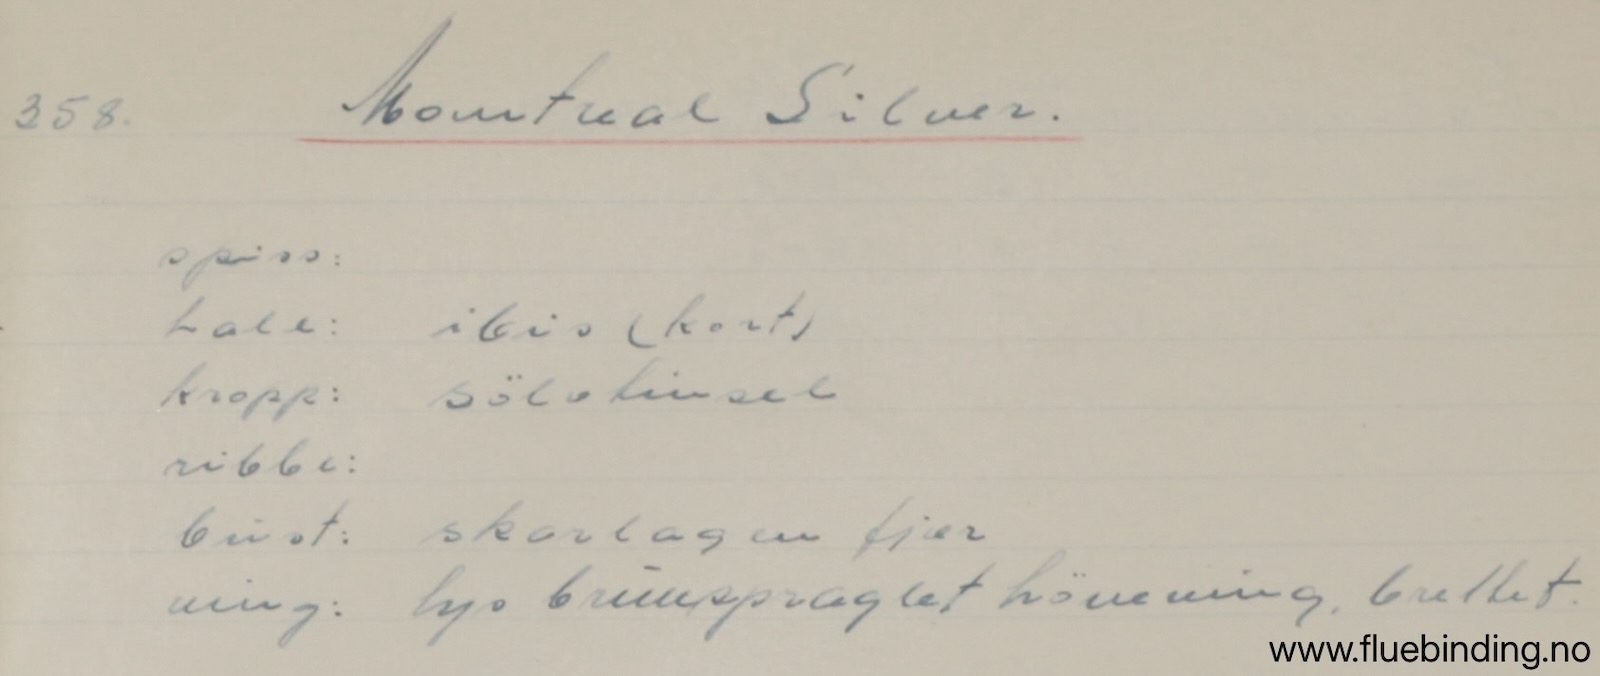 358. Montreal Silver.
spiss:
hale: ibis (kort)
kropp: sölvtinsel
ribbe:
bust: skarlagen fjær
ving: lys brunspraglet höneving, brettet.
www.fluebinding.no